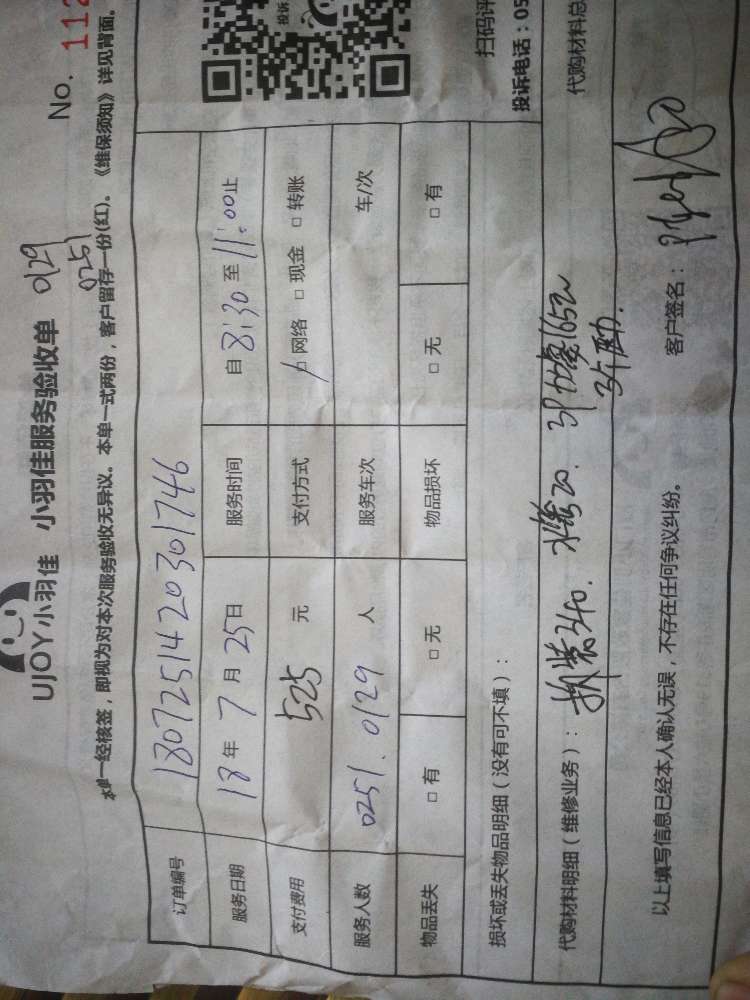 UJOY小羽佳 小羽佳服务验收单 0129
0251
No. 112
本单一经核签，即视为对本次服务验收无异议。本单一式两份，客户留存一份(红)。《维保须知》详见背面。
订单编号 1807251420301746
服务日期 18年 7月 25日 服务时间 自 8:30 至 11:00止
支付费用 525 元 支付方式 □网络 □现金 □转账
服务人数 0251.0129 人 服务车次 车/次
物品丢失 □有 □无 物品损坏 □无 □有
损坏或丢失物品明细（没有可不填）：
代购材料明细（维修业务）： 拆装340.
以上填写信息已经本人确认无误，不存在任何争议纠纷。
客户签名：
投诉
扫码评
投诉电话：05
代购材料总